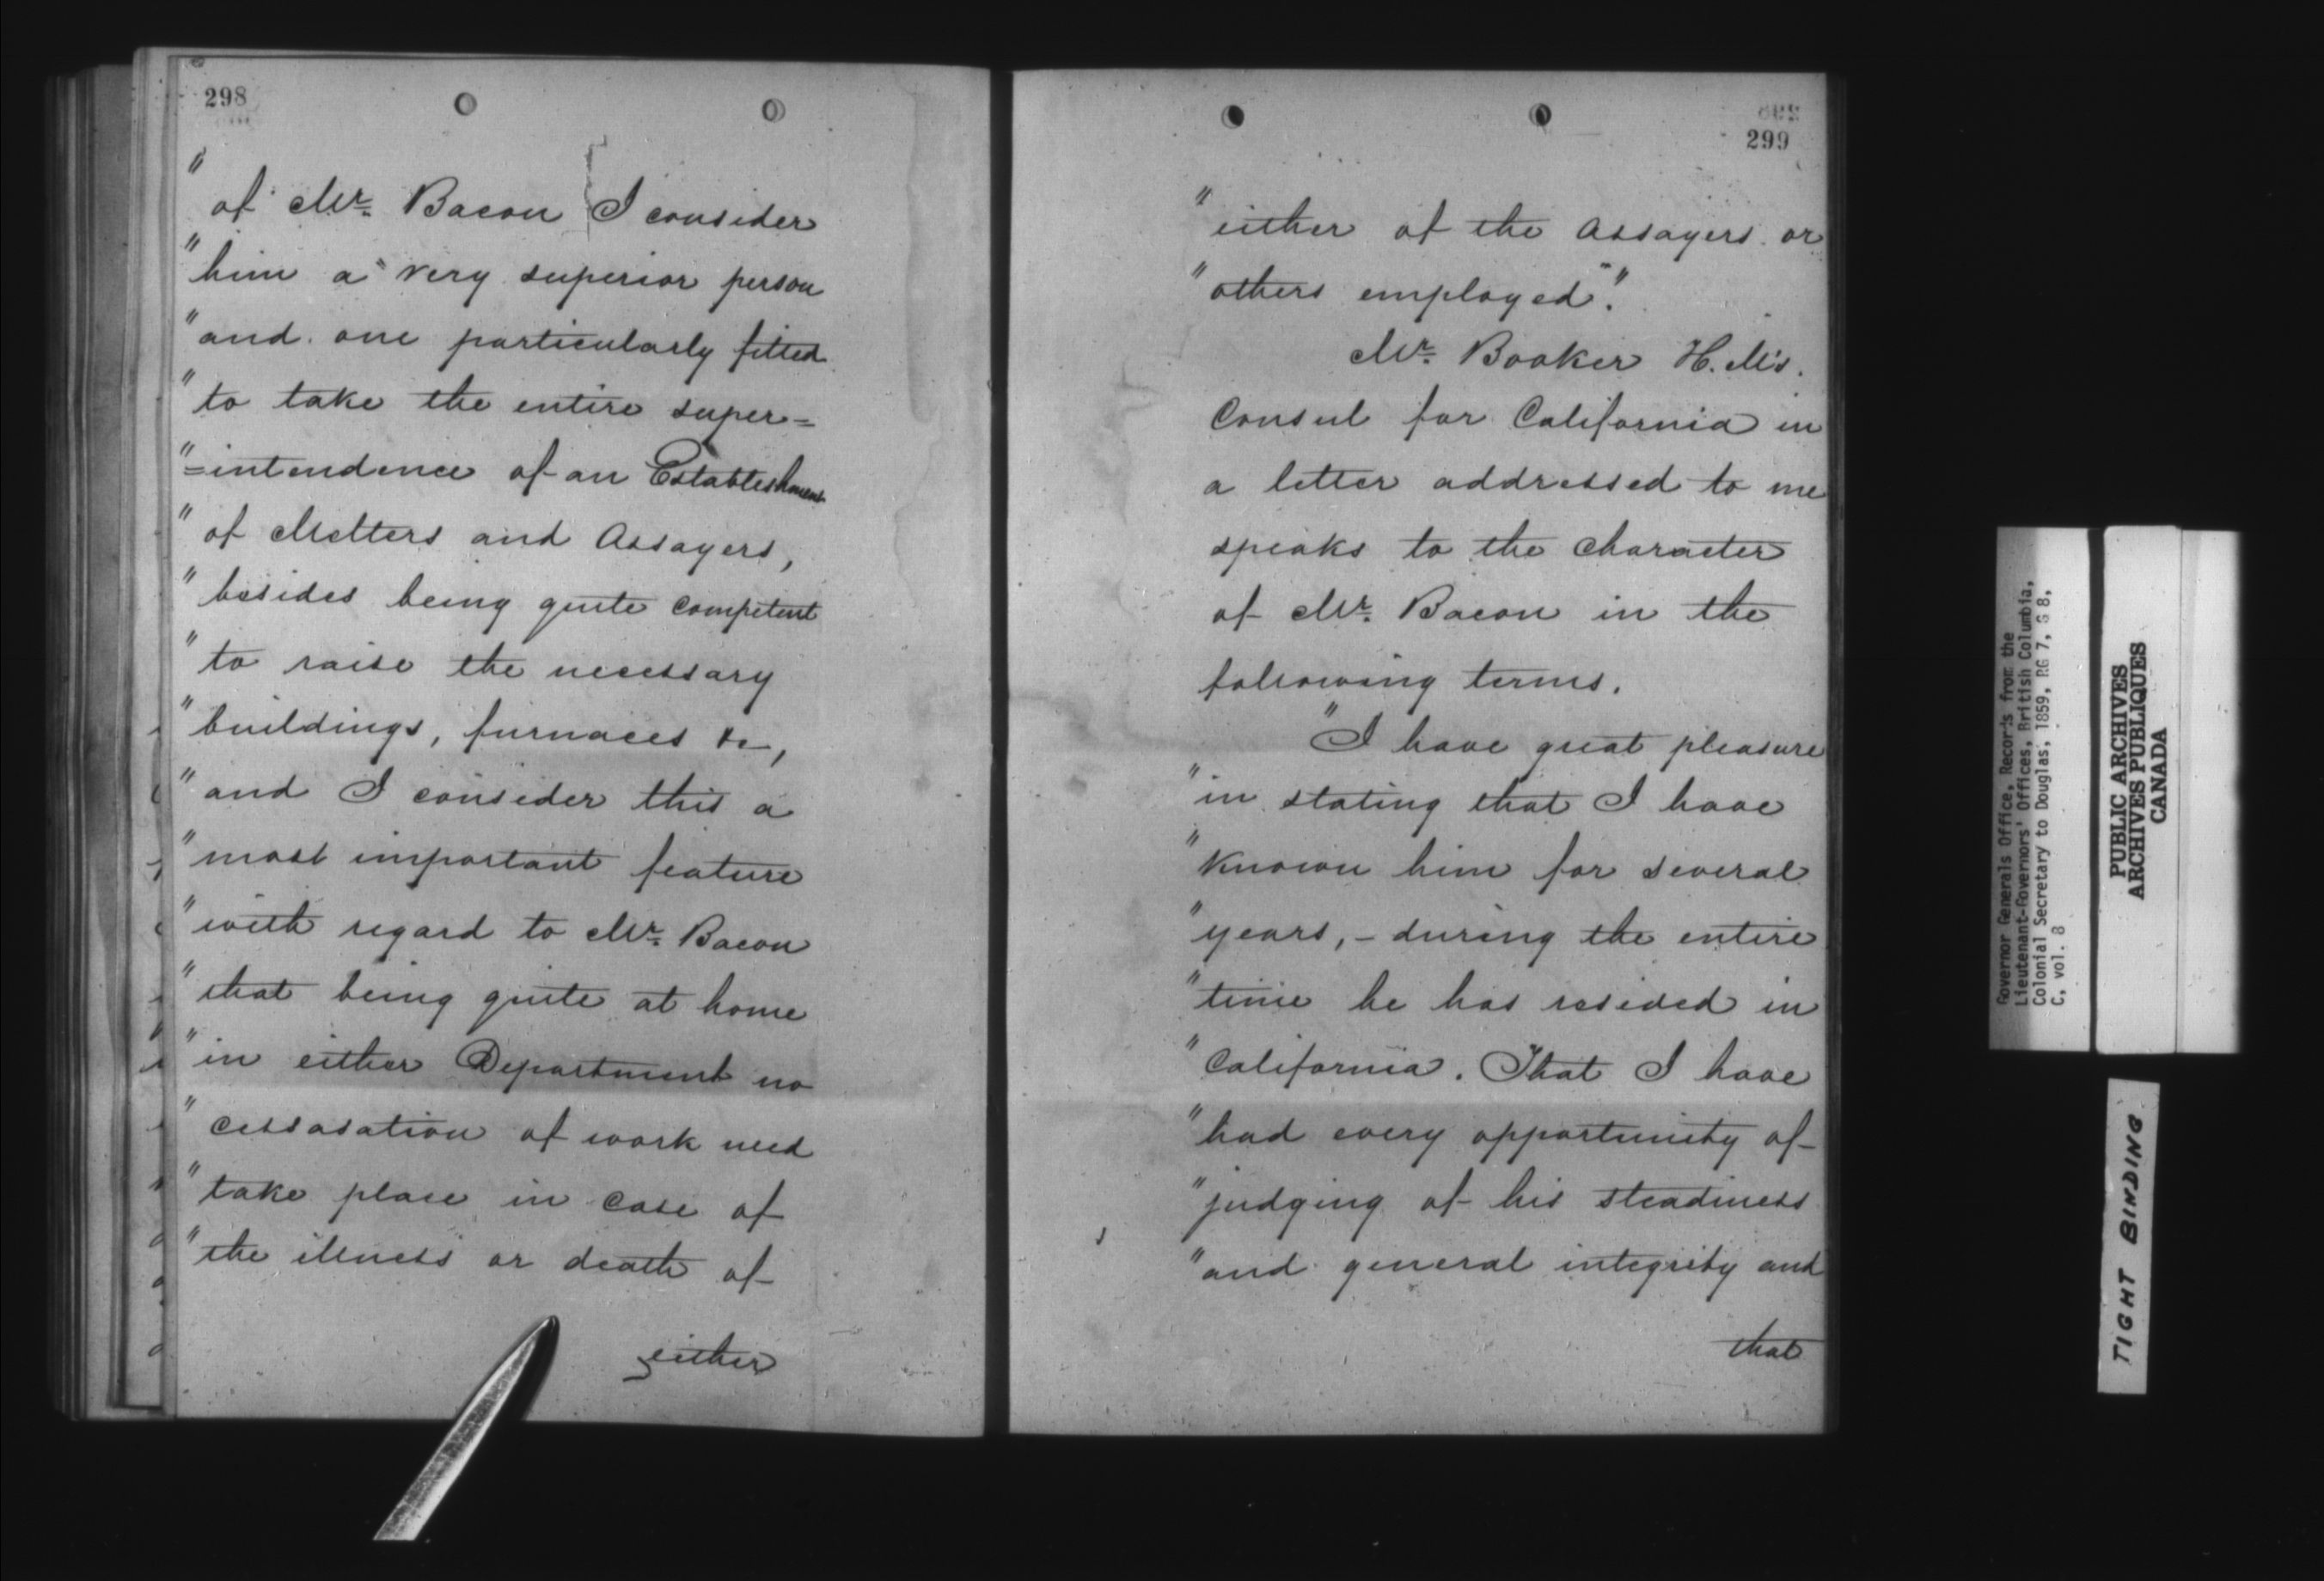 298
" of Mr. Bacon I consider
" him a very superior person
" and one particularly fitted
" to take the entire super=
" =intendence of an Establishment
" of Melters and Assayers,
" besides being quite competent
" to raise the necessary
" buildings, furnaces &c,
" and I consider this a
" most important feature
" with regard to Mr. Bacon
" that being quite at home
" in either Department no
" cessasation of work need
" take place in case of
" the illness or death of
either
299
" either of the Assayers or
" others employed".
Mr. Booker H.M's.
Consul for California in
a letter addressed to me
speaks to the character
of Mr. Bacon in the
following terms.
" I have great pleasure
" in stating that I have
" known him for several
" years, - during the entire
" time he has resided in
" California. That I have
" had every opportunity of
" judging of his steadiness
" and general integrity and
that
Governor Generals Office, Records from the
Lieutenant-Governors' Offices, British Columbia,
Colonial Secretary to Douglas, 1859, RG 7, G 8,
C, vol. 8
PUBLIC ARCHIVES
ARCHIVES PUBLIQUES
CANADA
TIGHT BINDING